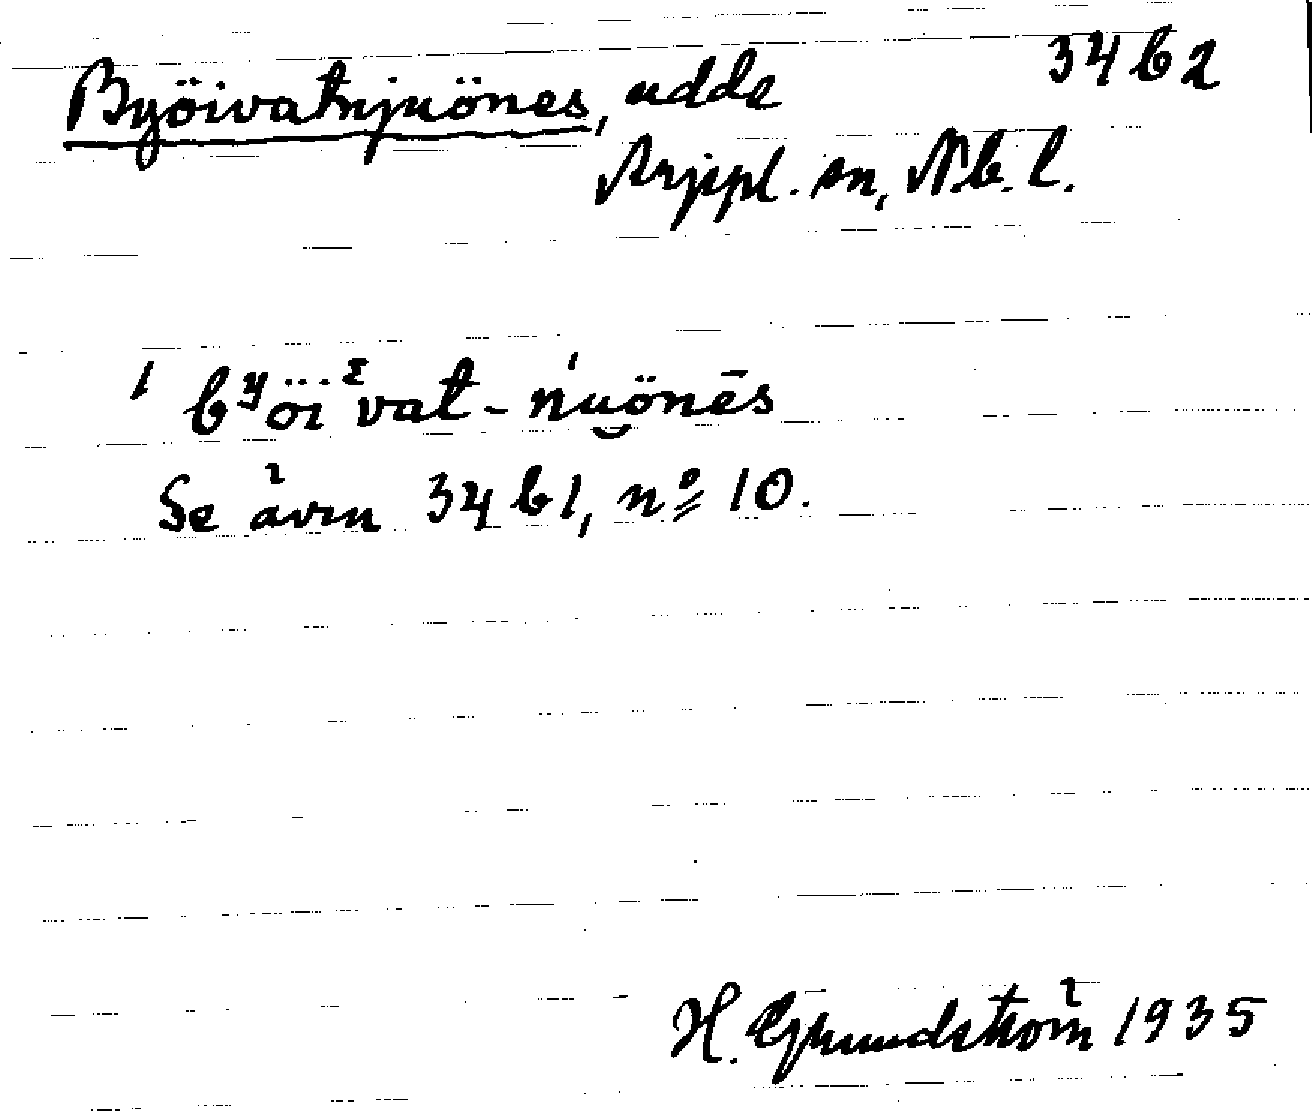 Byöivatnjuönes, udde 34 b 2
Arjepl. sn, N.b.l.
ˈbʸöiᵋvat-ńu̯önēs
Se även 34 b 1, nº 10.
H. Grundström 1935